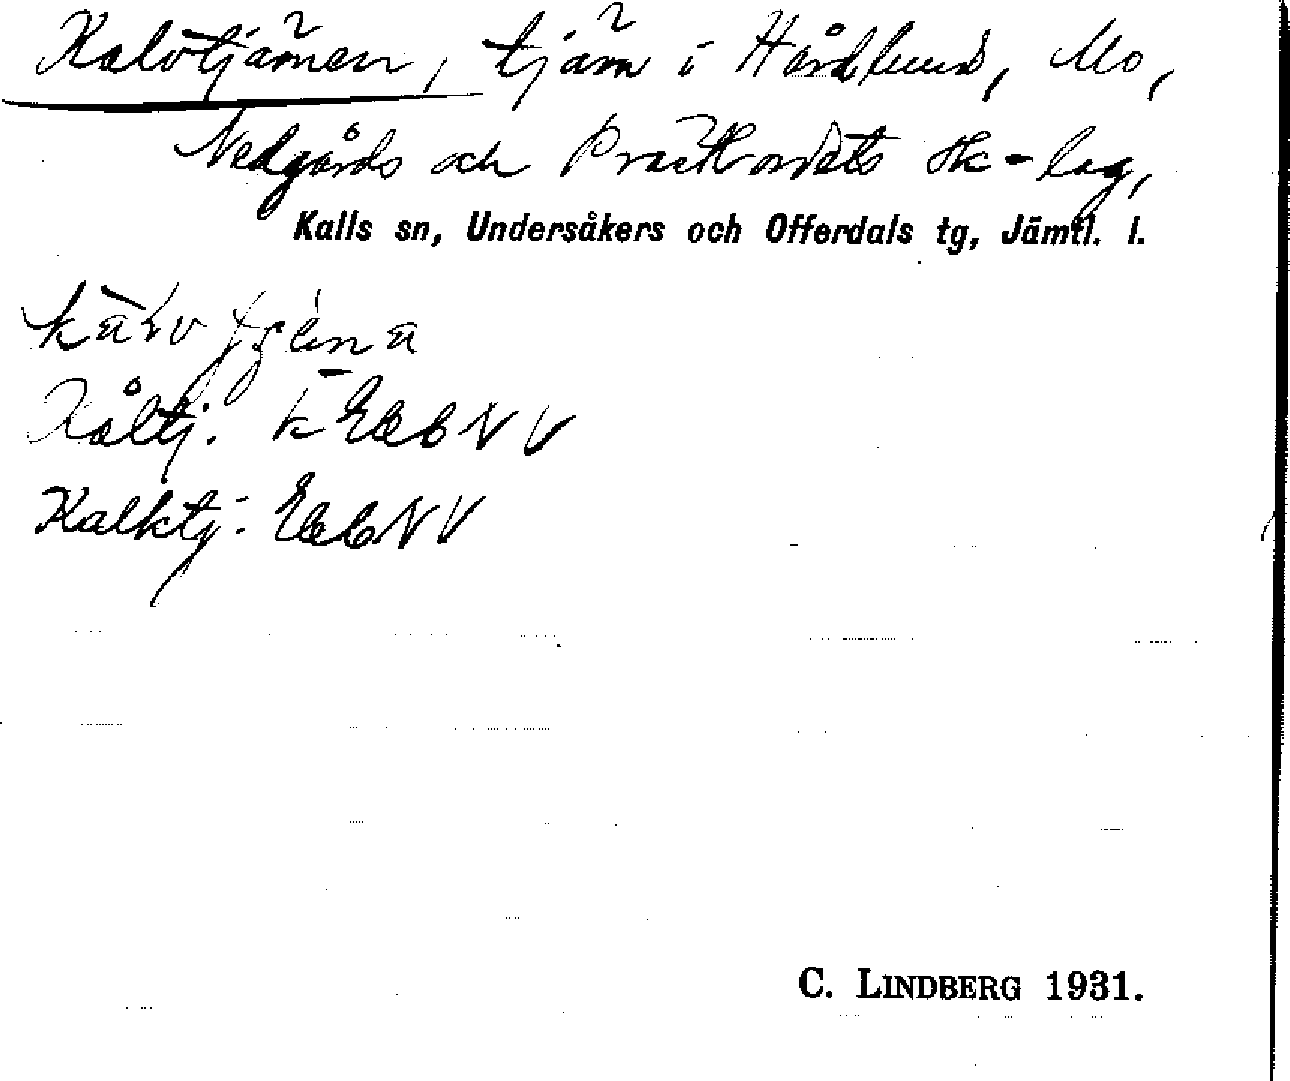 Kalvtjärnen, tjärn i Hårdlund, Mo,
Nedgårds och Prästbordets sk-lag,
Kalls sn, Undersåkers och Offerdals tg, Jämtl. l.
Kåltj.
Kalktj.
C. LINDBERG 1931.